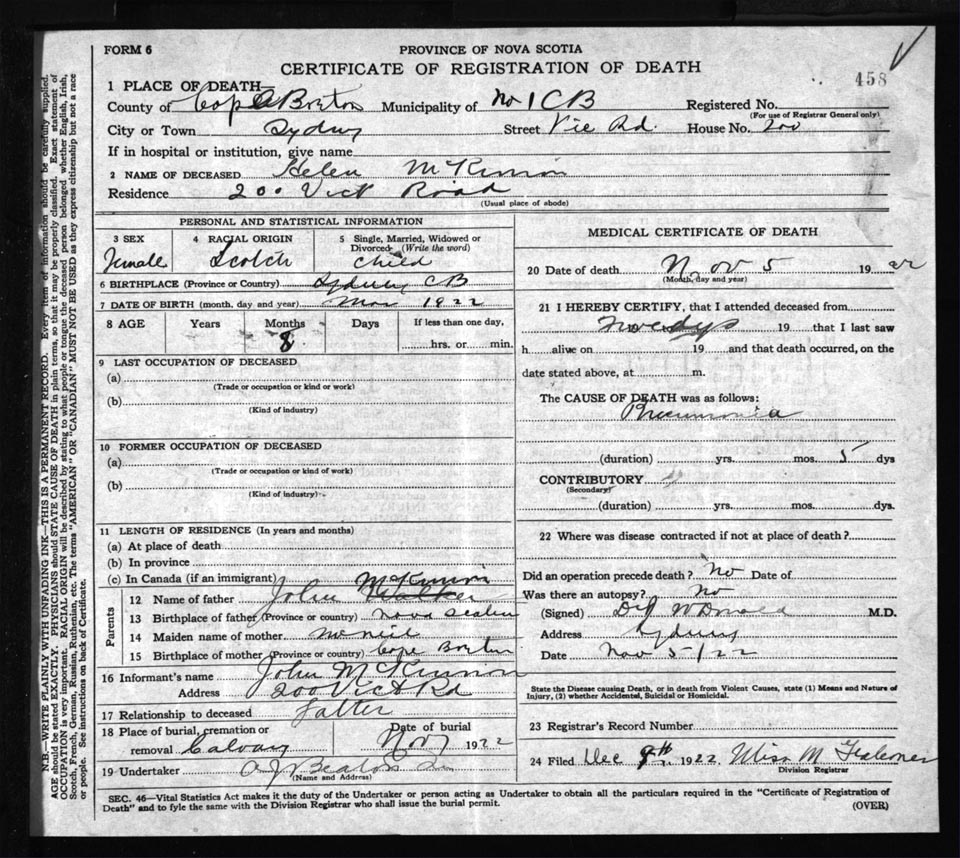 FORM 6
PROVINCE OF NOVA SCOTIA
CERTIFICATE OF REGISTRATION OF DEATH
458
1 PLACE OF DEATH
County of Cape Breton Municipality of No 1 CB Registered No.
(For use of Registrar General only)
City or Town Sydney Street Vic Rd. House No. 200
If in hospital or institution, give name
2 NAME OF DECEASED Helen McKinnon
Residence 200 Vict Road
(Usual place of abode)
PERSONAL AND STATISTICAL INFORMATION
3 SEX
Female
4 RACIAL ORIGIN
Scotch
5 Single, Married, Widowed or
Divorced (Write the word)
Child
6 BIRTHPLACE (Province or Country) Sydney CB
7 DATE OF BIRTH (month, day and year) Mar 1922
8 AGE Years Months Days If less than one day,
8 hrs. or min.
9 LAST OCCUPATION OF DECEASED
(a)
(Trade or occupation or kind or work)
(b)
(Kind of industry)
10 FORMER OCCUPATION OF DECEASED
(a)
(Trade or occupation or kind of work)
(b)
(Kind of industry)
11 LENGTH OF RESIDENCE (In years and months)
(a) At place of death
(b) In province
(c) In Canada (if an immigrant)
Parents
McKinnon
12 Name of father John Walker
13 Birthplace of father (Province or country) Nova Scotia
14 Maiden name of mother McNeil
15 Birthplace of mother (Province or country) Cape Breton
16 Informant's name John McKinnon
Address 200 Vict Rd
17 Relationship to deceased Father
18 Place of burial, cremation or
removal Calvary
Date of burial
Nov 7 1922
19 Undertaker A J Beaton
(Name and Address)
MEDICAL CERTIFICATE OF DEATH
20 Date of death Nov 5 19 22
(Month, day and year)
21 I HEREBY CERTIFY, that I attended deceased from
19 that I last saw
h alive on 19 and that death occurred, on the
date stated above, at m.
The CAUSE OF DEATH was as follows:
Pneumonia
(duration) yrs. mos. 5 dys
CONTRIBUTORY
(Secondary)
(duration) yrs. mos. dys.
22 Where was disease contracted if not at place of death?
Did an operation precede death? No Date of
Was there an autopsy? No
(Signed) M.D.
Address Sydney
Date Nov 5/22
State the Disease causing Death, or in death from Violent Causes, state (1) Means and Nature of
Injury, (2) whether Accidental, Suicidal or Homicidal.
23 Registrar's Record Number
24 Filed Dec 9th 1922 Miss M Falconer
Division Registrar
SEC. 46—Vital Statistics Act makes it the duty of the Undertaker or person acting as Undertaker to obtain all the particulars required in the "Certificate of Registration of
Death" and to fyle the same with the Division Registrar who shall issue the burial permit.
(OVER)
N.B.—WRITE PLAINLY WITH UNFADING INK—THIS IS A PERMANENT RECORD. Every item of information should be carefully supplied.
AGE should be stated EXACTLY. PHYSICIANS should STATE CAUSE OF DEATH in plain terms, so that it may be properly classified. Exact statement of
OCCUPATION is very important. RACIAL ORIGIN will be described by stating to what people or tongue the deceased person belonged whether English, Irish,
Scotch, French, German, Russian, Ruthenian, etc. The terms "AMERICAN" OR "CANADIAN" MUST NOT BE USED as they express citizenship but not a race
or people. See instructions on back of Certificate.